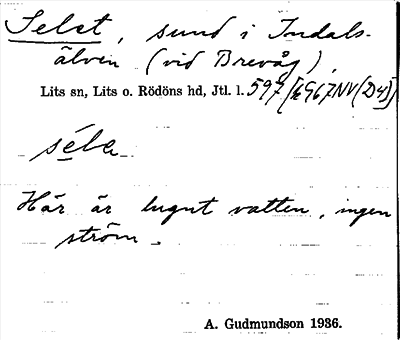 Selet, sund i Indals-
älven (vid Brevåg),
Lits sn, Lits o. Rödöns hd, Jtl. l. 597
séla
Här är lugnt vatten, ingen
ström.
A. Gudmundson 1936.